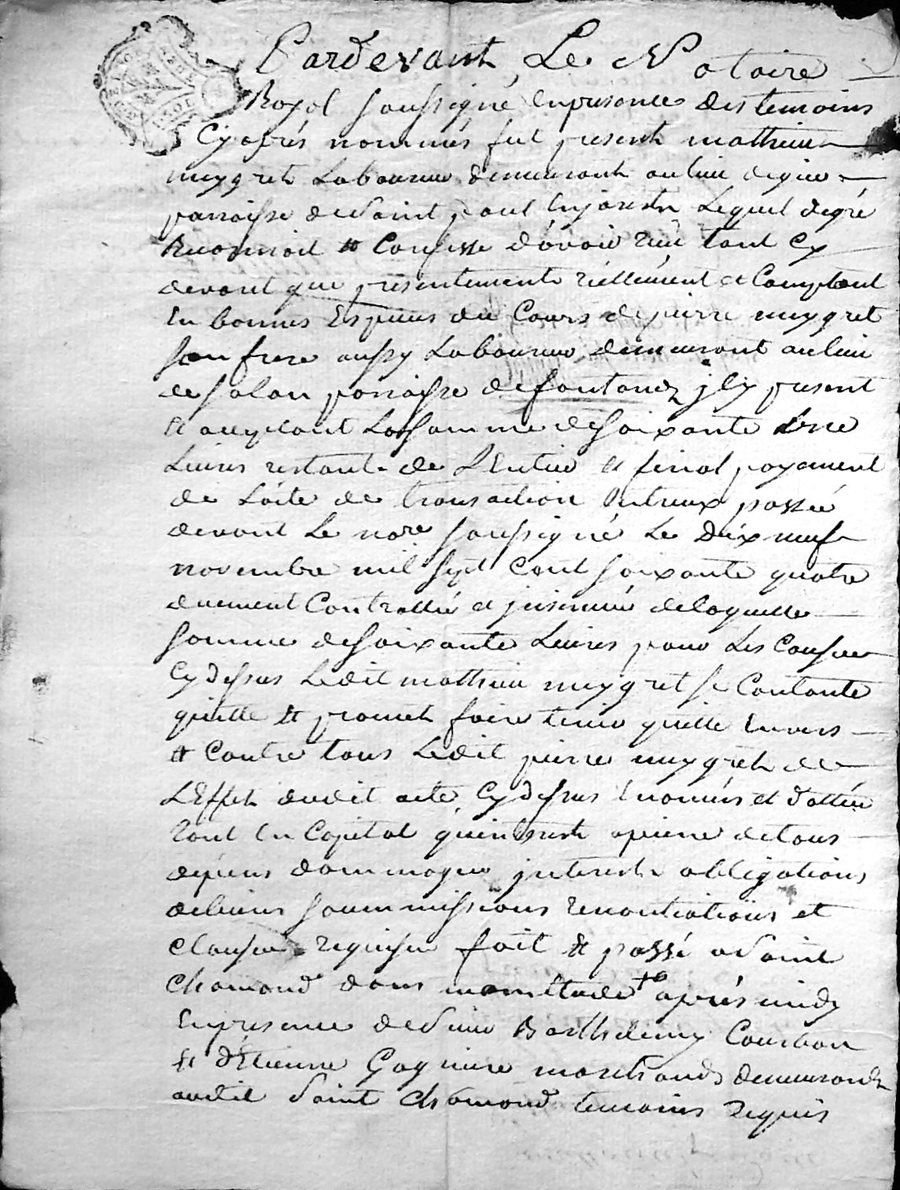 Pardevant Le Notaire
Royal soussigné En presence des temoins
Cy aprés nommés fut present mathieu
meygret Laboureur demeurant au lieu
parroisse de Saint paul En jarest Lequel de gré
Reconnoit et Confesse d'avoir reçu tant Cy
devant que presentement réellement et Comptant
En bonnes Especes du Cours de pierre meygret
son frere aussy Laboureur demeurant au lieu
de salan parroisse de fontanez jcy present
et acceptant La somme de soixante
Livres restante de L'Entier et final payement
de L'acte de transaction Entreux passée
devant Le nore soussigné Le dix neuf
novembre mil sept Cent soixante quatre
duement Controllée et jnsinuée de laquelle
somme de soixante Livres pour Les Causes
Cy dessus Ledit mathieu meygret se Contente
quitte et promet faire tenir quitte Envers
et Contre tous Ledit pierre meygret de
L'Effet dudit acte Cy dessus Enoncés et datté
tant En Capital qu'interest a peine de tous
depens dommages jnterests obligations
de biens soummissions renontiations et
clauses requises fait et passé a Saint
chamond dans mon Etude aprés midy
En presence de Sieur Barthelemy Courbon
et d'Etienne Gagniere marchands demeurants
audit Saint chamond temoins requis